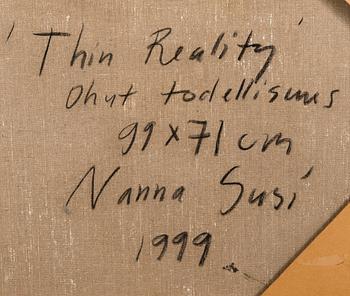 'Thin Reality'
Ohut todellisuus
99 x 71 cm
Nanna Susi
1999